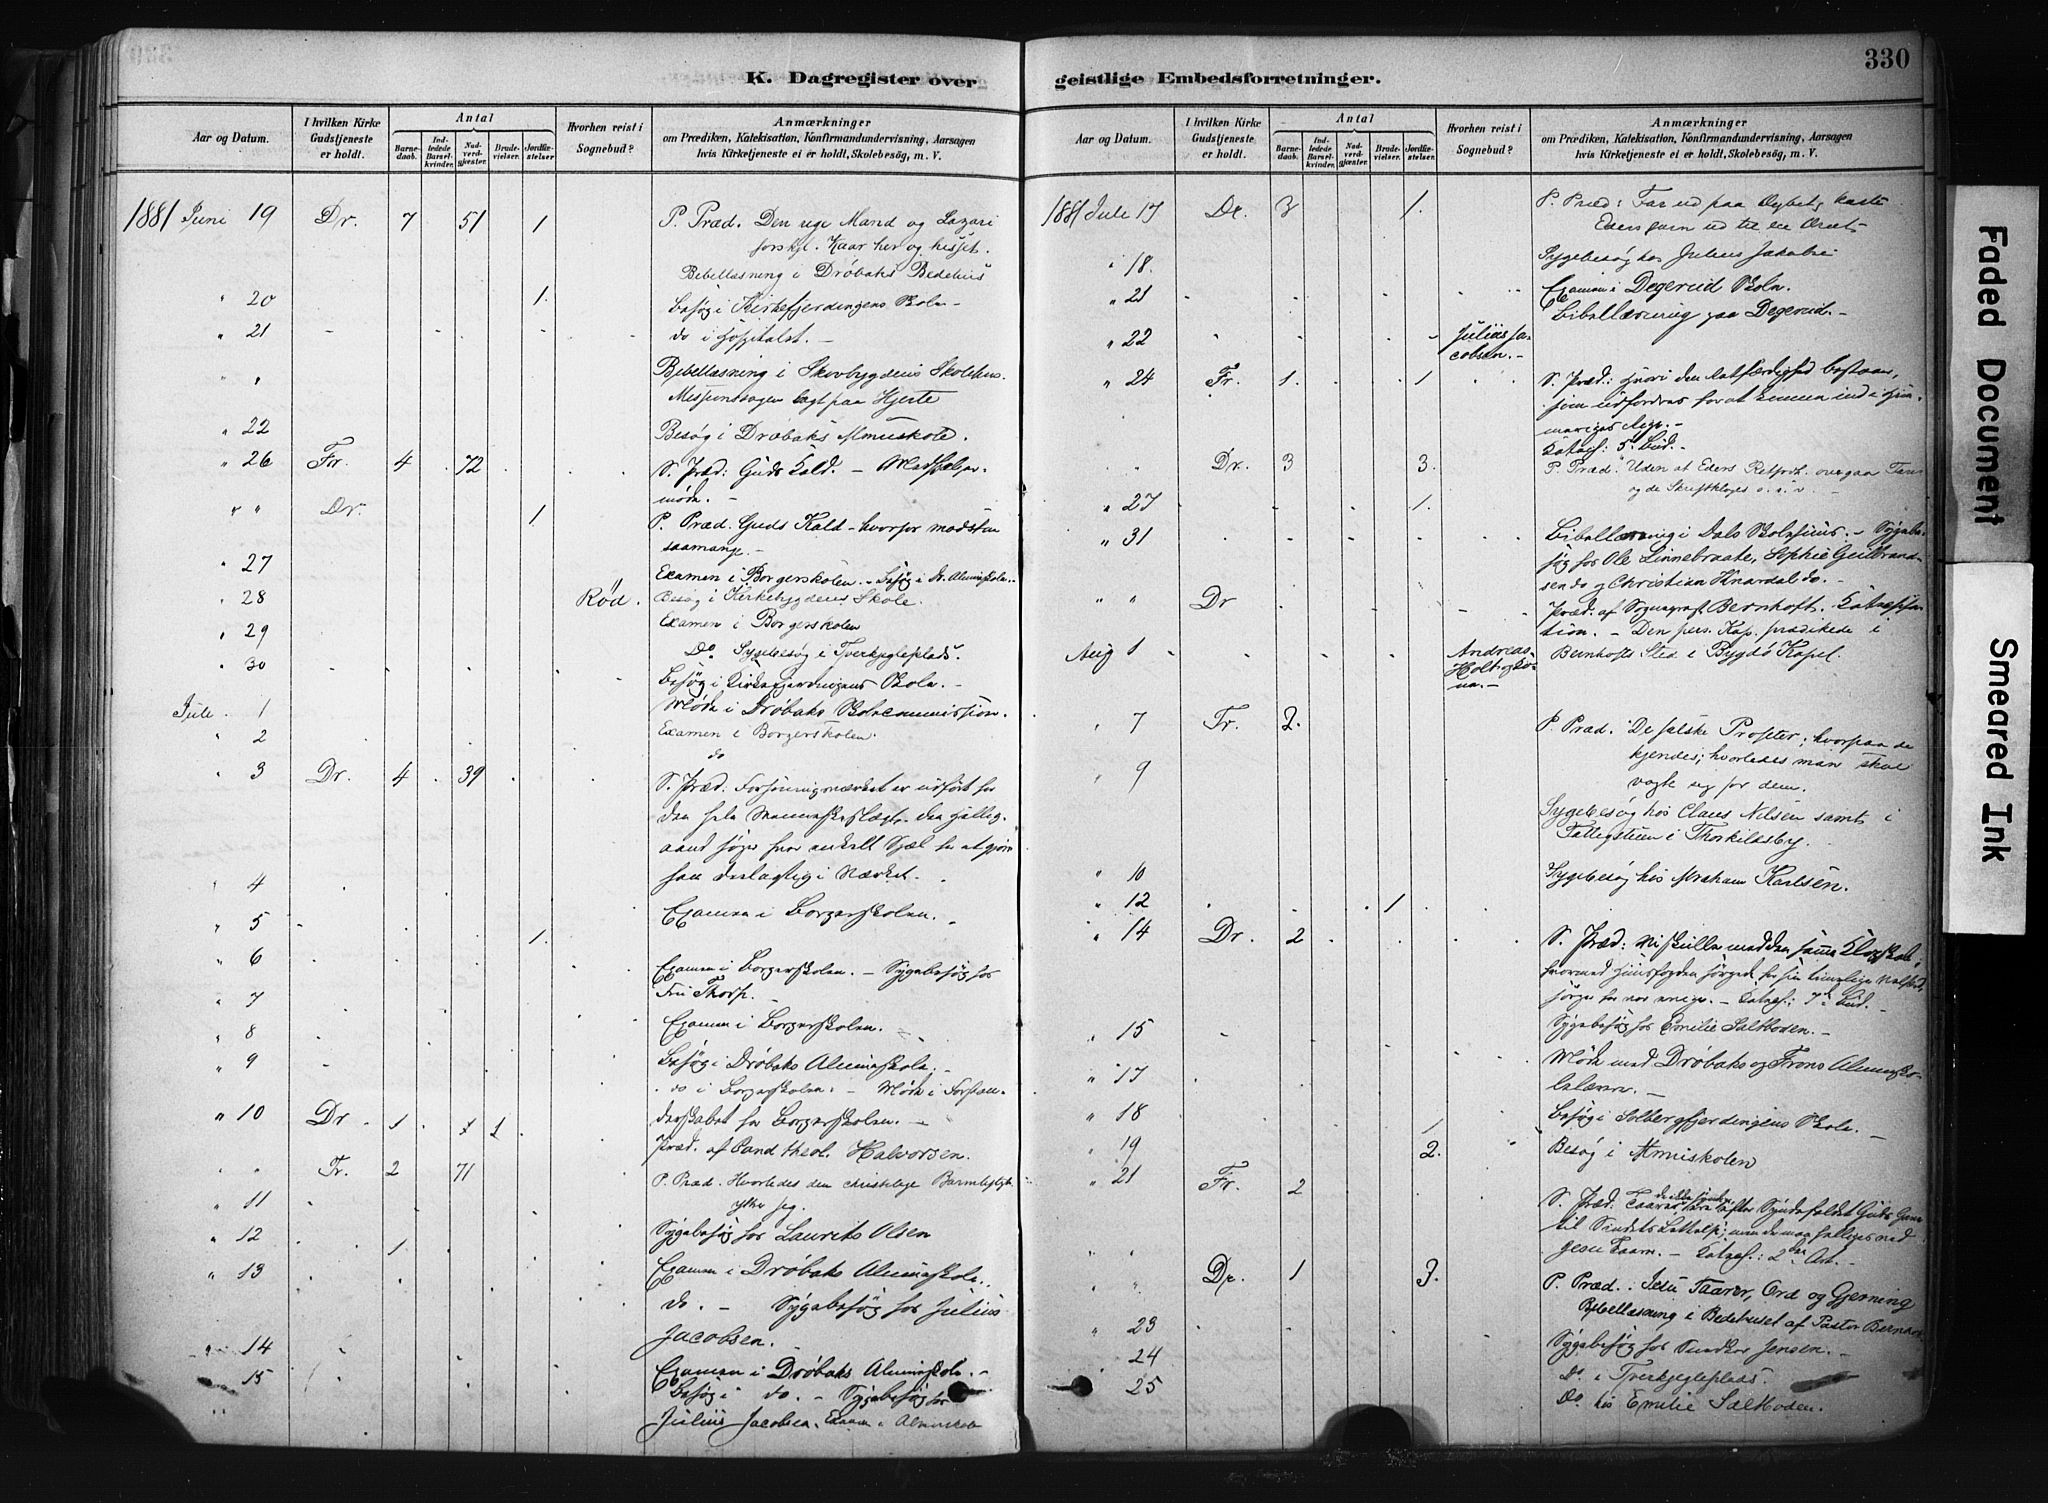 330
K. Dagregister over
Aar og Datum.
I hvilken Kirke Gudstjeneste er holdt.
Antal
Barnedaab.
Indledede Barselkvinder.
Nadverdgjester.
Brudevielser.
Jordfæstelser
Hvorhen reist i Sognebud?
Anmærkninger
om Prædiken, Katekisation, Konfirmandundervisning, Aarsagen
hvis Kirketjeneste ei er holdt, Skolebesøg, m. V.
1881 Juni 19 Dr. 7 51 1 P. Præd. Den rige Mand og Lazari
forskj. Kaar her og hisset.
Bibellæsning i Drøbaks Bedehus
" 20 1. Besøg i Kirkefjerdingens Skole
" 21 do i Hospitalet.
" " Bibellæsning i Skovbygdens Skolehus.
Missionssagen lagt paa Hjerte
" 22 Besøg i Drøbaks Almuskole.
" 26 Fr. 4 72 S. Præd: Guds Kald. –
møde. –
" " Dr. 1 P. Præd. Guds Kald – hvorfor modstaa
saamange. –
" 27 Examen i Borgerskolen. – Besøg i Dr. Almuskole.
" 28 Rød. Besøg i Kirkebygdens Skole.
Examen i Borgerskolen
" 29 Do. Sygebesøg i Tverkjegleplads.
" 30 Besøg i Kirkefjerdingens Skole. –
Jule 1 Møde i Drøbaks Skolecommission.
" 2 Examen i Borgerskolen.
do
" 3 Dr. 4 39 S. Præd: Forsoningsværket er udført for
den hele Menneskeslægt. den hellig
aand søger hver enkelt Sjæl for at gjøre
den delagtig i Værket.
" 4
" 5 Examen i Borgerskolen.
" 6 1. Examen i Borgerskolen. – Sygebesøg hos
Fru Thorp. –
" 7
" 8 Examen i Borgerskolen.
" 9 Besøg i Drøbaks Almueskole. –
do i Borgerskolen. – Møde i Forstan-
derskabet for Borgerskolen. –
" 10 Dr 1 1 1 Præd. af Cand theol. Halvorsen.
" " Fr. 2 71 P. Præd. Hvorledes den christelige Barmhjertigh.
ytter sig.
" 11 Sygebesøg hos Laurits Olsen
" 12 1. Examen i Drøbaks Almueskole.
" 13 do. – Sygebesøg hos Julius
Jacobsen.
" 14 Examen i Drøbaks Almueskole. –
" 15 Besøg i do. – Sygebesøg hos
Julius Jacobsen. Examen i Almueskole
geistlige Embedsforretninger.
Aar og Datum.
I hvilken Kirke Gudstjeneste er holdt.
Antal
Barnedaab.
Indledede Barselkvinder.
Nadverdgjester.
Brudevielser.
Jordfæstelser
Hvorhen reist i Sognebud?
Anmærkninger
om Prædiken, Katekisation, Konfirmandundervisning, Aarsagen
hvis Kirketjeneste ei er holdt, Skolebesøg, m. V.
1881 Jule 17 Dr. 3 1. P. Præd: Far ud paa Dybet, kaste
Eders garn ud til en Dræt
" 18. Sygebesøg hos Julius Jakobse
" 21 Examen i Degerud Skole.
Bibellæsning paa Degerud. –
" 22 Julius Jacobsen. –
" 24 Fr. 1. 1 S. Præd: Hvori den Retfærdighed bestaar,
som udfordres for at komme ind i Him-
meriges Rige. –
Catech: 5. Bud. –
" Dr. 3 3. P. Præd. "Uden at Eders Retfærd. overgaa Fari
og de Skriftkloges o. s. v. –
" 27 1.
" 31 Bibellæsning i Dals Skolehus. – Sygebe-
søg hos Ole Linnebraate, Sophie Gulbrand-
sen do og Christian Knardal do. –
" " Dr Præd. af Sognepræst Bernhoft.
– Den pers. Kap. prædikede i
Bernhofts Sted i Bygdø Kapel.
Aug 1 Andreas Holt
" 7 Fr. 2. P. Præd. De falske Profeter; hvorpaa de
kjendes; hvorledes man skal
vogte sig for dem.
" 9 Sygebesøg hos Claus Nilsen samt i
Fattigstuen i Thorkildsby.
" 10 Sygebesøg hos Abraham Karlsen.
" 12 1
" 14 Dr. 2 S. Præd: Vi skulle med den samme Klogskab,
hvormed Huusfogden sørgede for sin timelige Velfærd,
sørge for vor evige. – Catech: 7de Bud. –
" 15 Sygebesøg hos Emilie Saltboden. –
Møde med Drøbaks og Frons Almuesko-
lelærere.
" 17
" 18 1 Besøg i Solbergfjerdingens Skole. –
" 19 2. Besøg i Almuskolen
" 21 Fr. 2 S. Præd:
Jesu Taarer. – Catech: 2den Art. –
" " Dr. 1 3. P. Præd. : Jesu Taarer, Ord og Gjerning
Bibellæsning i Bedehuset af Pastor Bernhoft
" 23 Sygebesøg hos Snedker Jensen. –
" 24 Do. i Tverkjegleplads.
" 25 Do hos Emilie Saltboden.
Faded Document
Smeared Ink